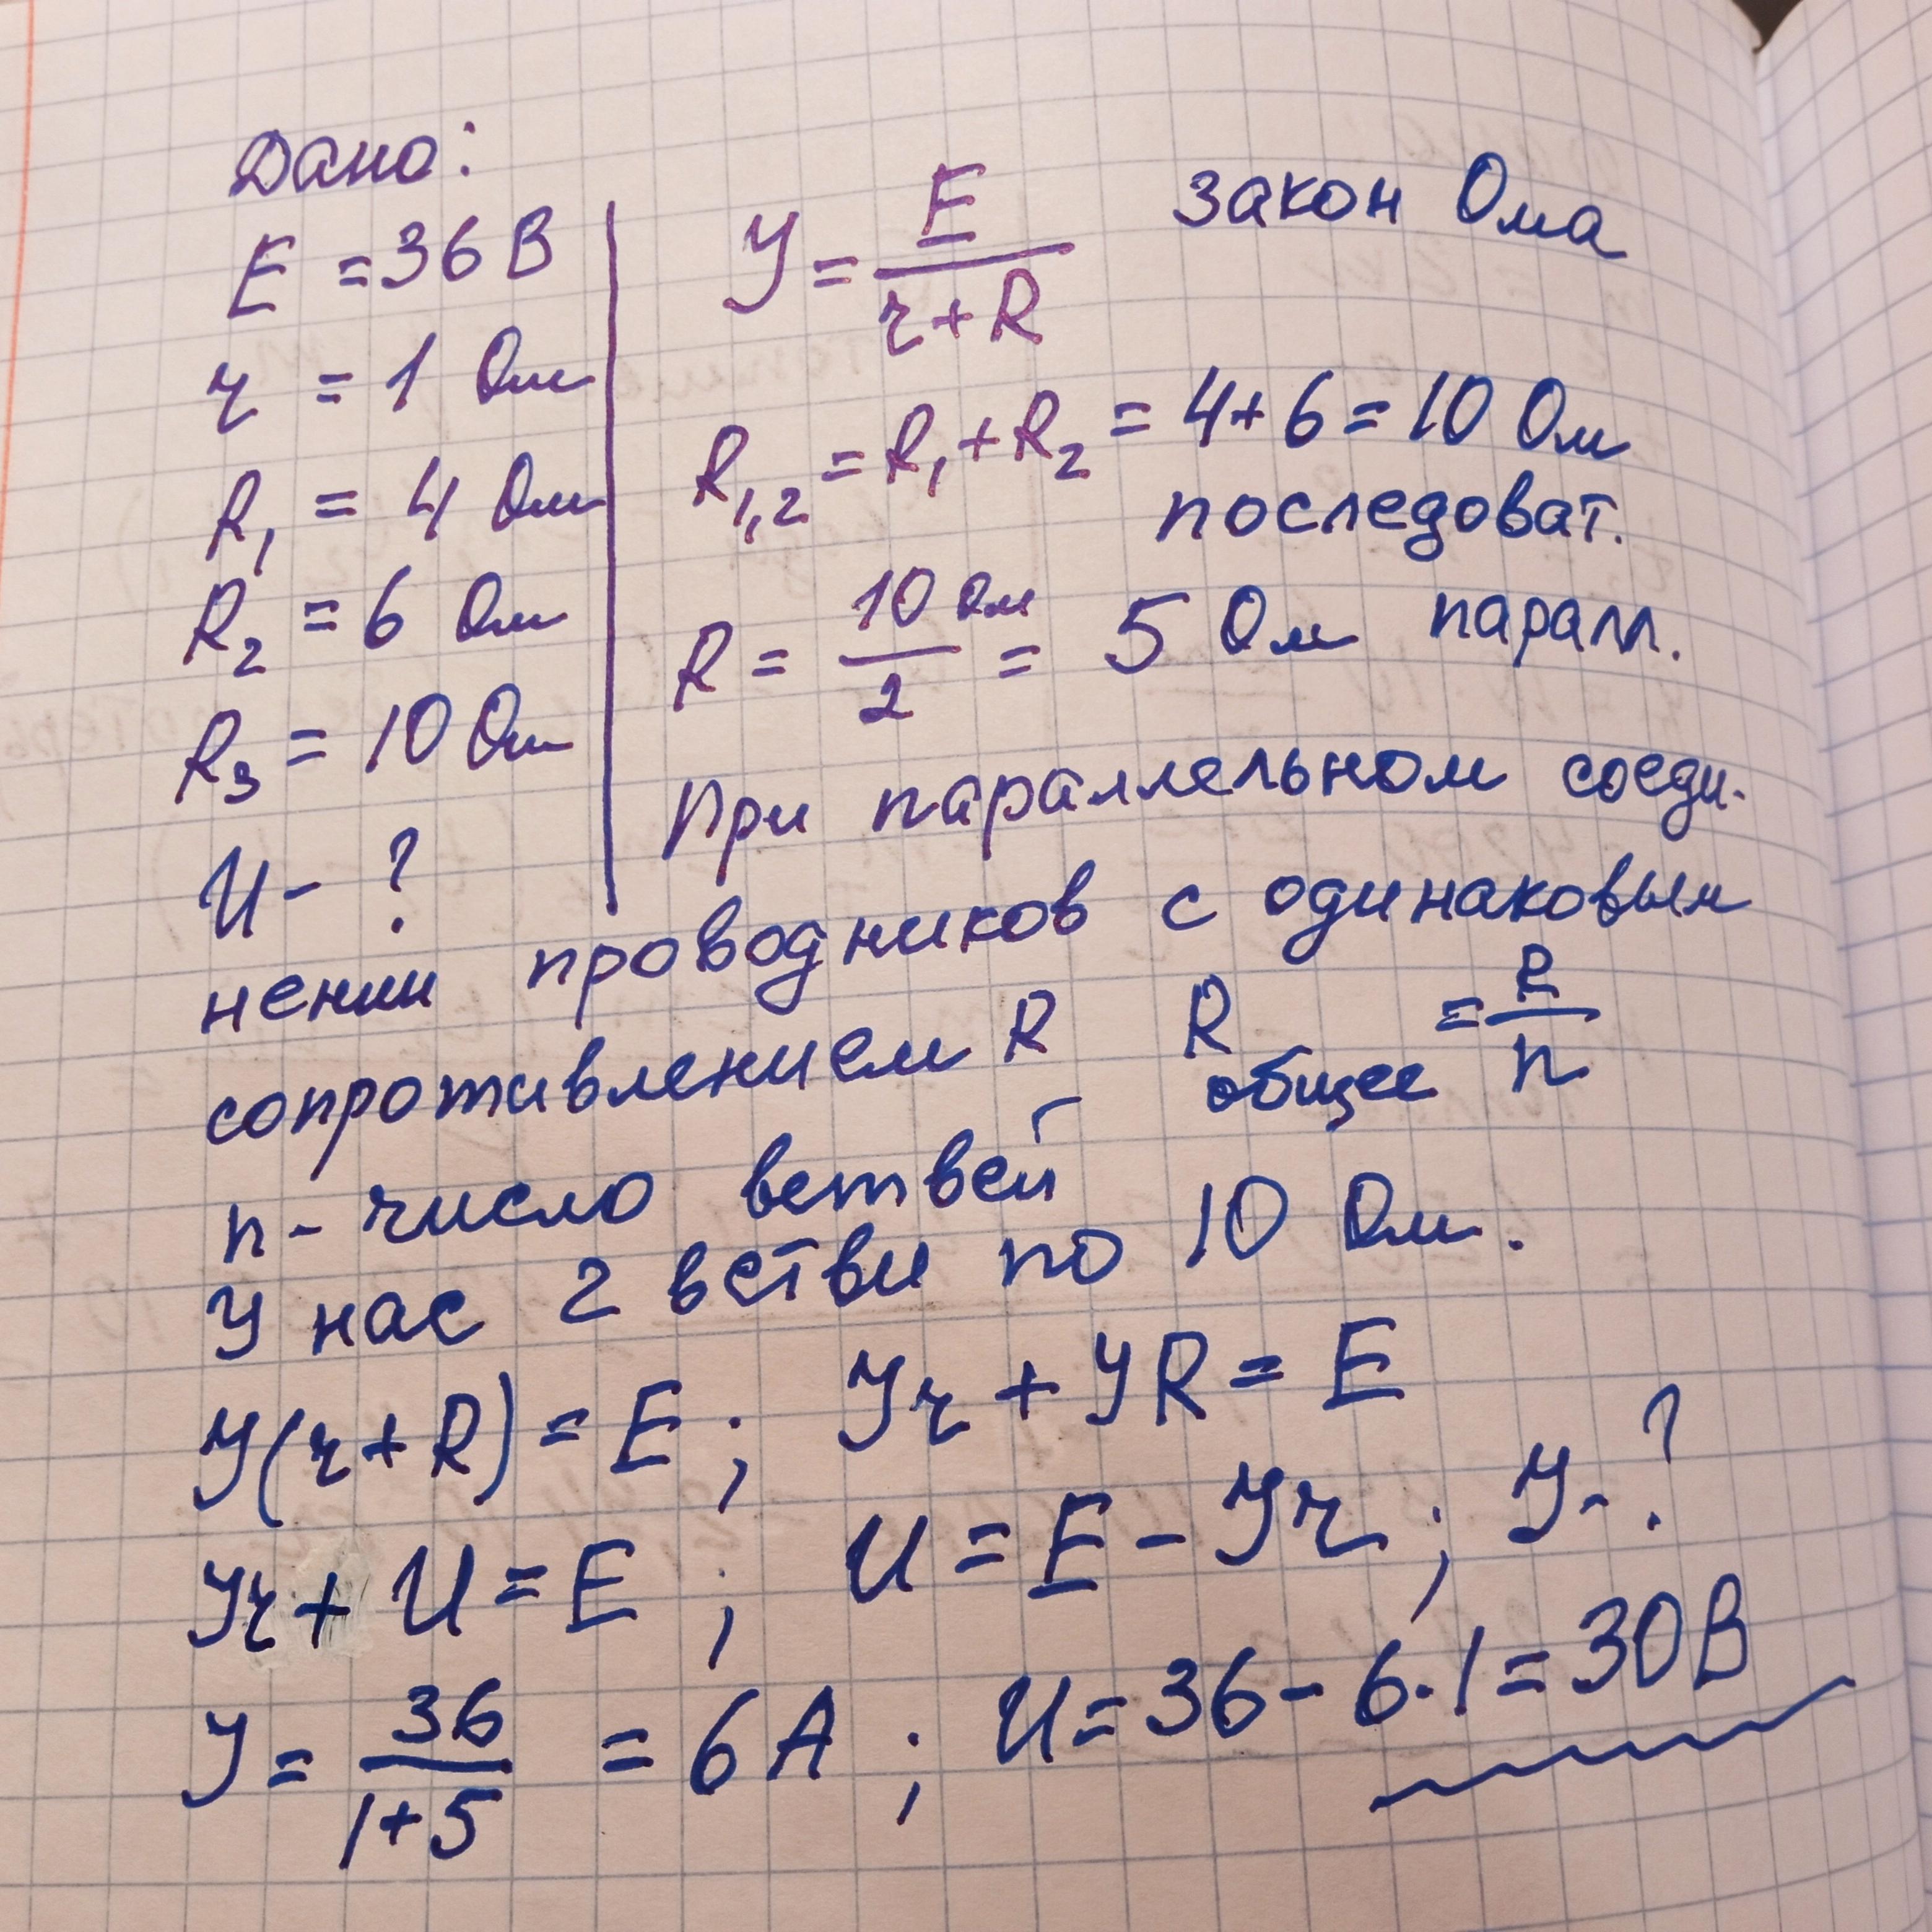 Дано:
E = 36 В
r = 1 Ом
R₁ = 4 Ом
R₂ = 6 Ом
R₃ = 10 Ом
U - ?
У = E/(r+R) закон Ома
R₁,₂ = R₁ + R₂ = 4 + 6 = 10 Ом
последоват.
R = 10 Ом/2 = 5 Ом паралл.
При параллельном соеди-
нении проводников с одинаковым
сопротивлением R R общее = R/n
n - число ветвей
У нас 2 ветви по 10 Ом.
У(r+R) = E ; Уr + УR = E
Уr + U = E ; U = E - Уr ; У - ?
У = 36/(1+5) = 6 А ; U = 36 - 6·1 = 30 В